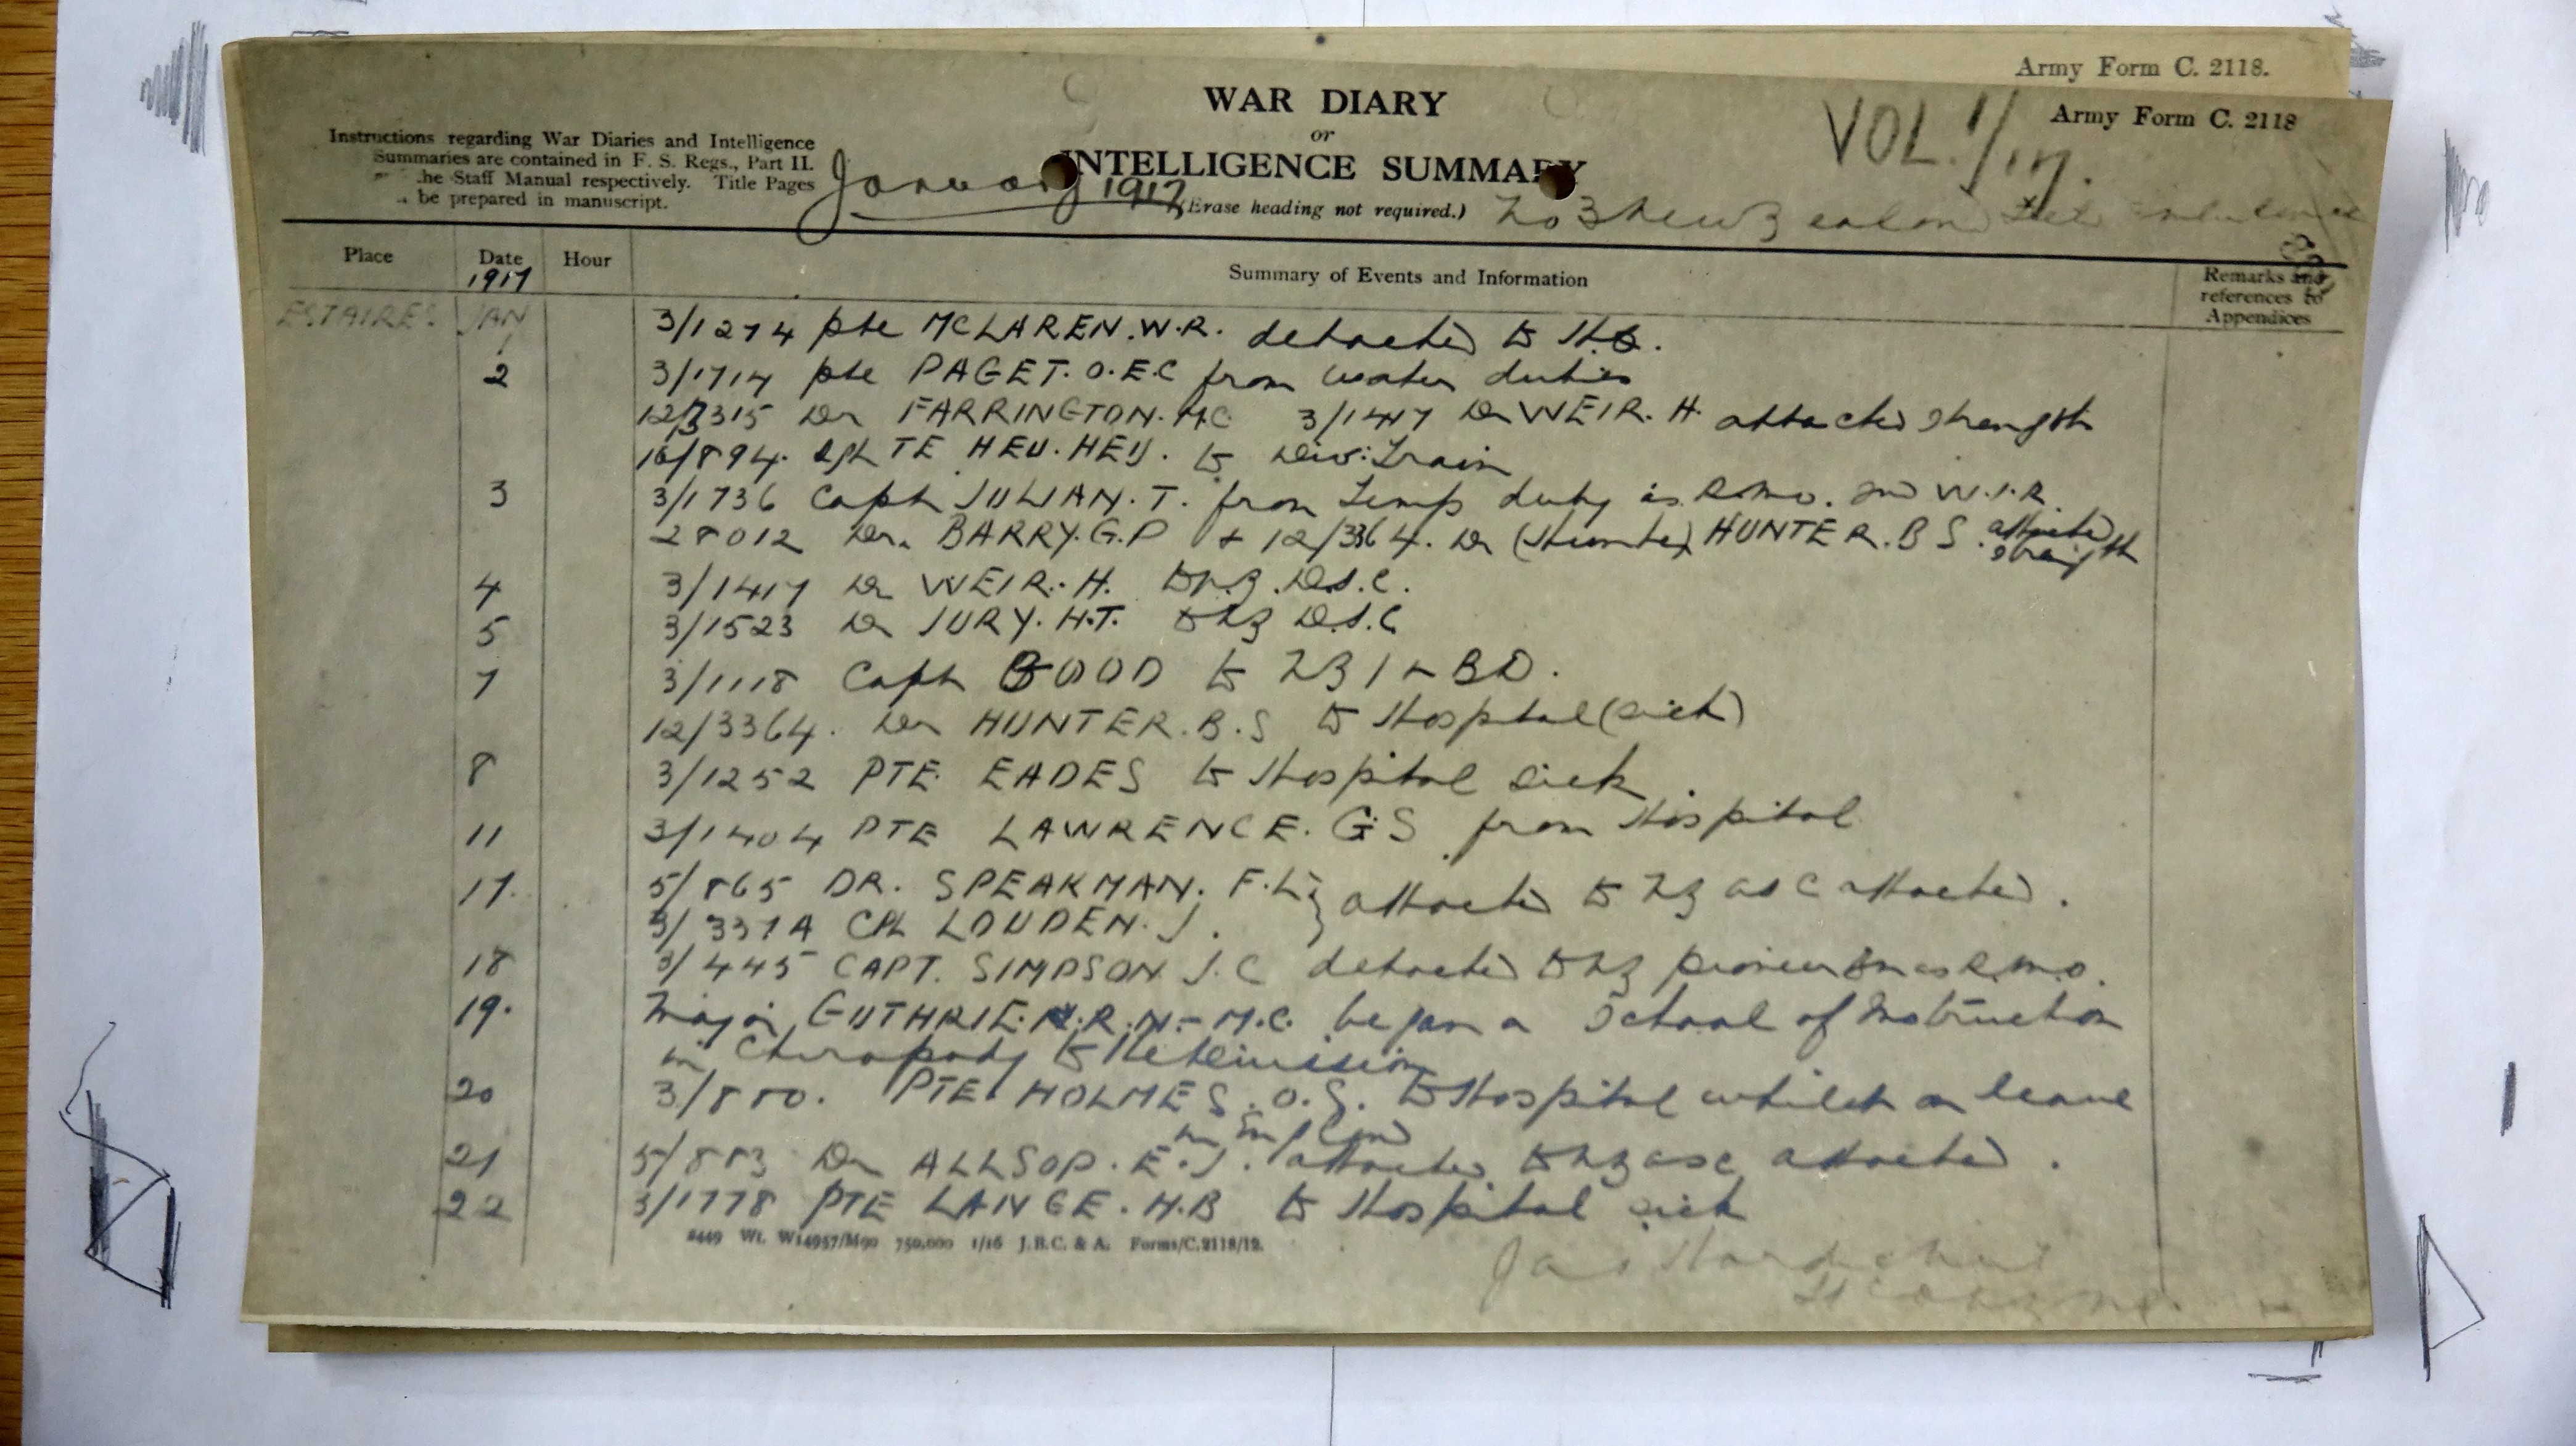 Army Form C. 2118.
WAR DIARY
or
INTELLIGENCE SUMMARY
(Erase heading not required.)
Army Form C. 2118
VOL. 1/17.
Instructions regarding War Diaries and Intelligence
Summaries are contained in F. S. Regs., Part II.
the Staff Manual respectively. Title Pages
be prepared in manuscript.
January 1917
No 3 New Zealand Field Ambulance
Place
Date
1917
Hour
Summary of Events and Information
Remarks and
references to
Appendices
ESTAIRES. JAN
1 3/1274 pte MCLAREN. W.R. detached to
2 3/1714 pte PAGET. O.E.C from water duties
12/3315 Dr FARRINGTON. M.C. 3/1417 Dr WEIR. H. attached strength
16/894. TE HEU. HEU. to Div: Train
3 3/1736 Capt JULIAN. T. from temp duty as R.M.O. 2nd W.I.R.
28012 Dr. BARRY. G.P + 12/3364. Dr HUNTER. B S. attached
strength
4 3/1417 Dr WEIR. H. to N.Z. D.S.C.
5 3/1523 Dr JURY. H.T. to NZ D.S.C
7 3/1118 Capt GOOD to NZ BD.
12/3364. Dr HUNTER. B.S to Hospital (sick)
8 3/1252 PTE EADES to Hospital sick
11 3/1404 PTE LAWRENCE. G.S from Hospital
17. 5/865 DR. SPEAKMAN. F.L. } attached to NZ asc attached.
3/337A CPL LOUDEN. J.
18 3/445 CAPT. SIMPSON J.C detached to NZ pioneer Bn as R.M.O.
19. Major GUTHRIE. R. N. - M.C. began a School of Instruction
in Chiropody to the Division
20 3/880. PTE. HOLMES. O.S. to Hospital whilst on leave
in England
21 5/883 Dr ALLSOP. E.J. attached to NZ asc attached.
22 3/1778 PTE LANGE. H.B to Hospital sick
2449 Wt. W14957/M90 750,000 1/16 J.B.C. & A. Forms/C.2118/12.